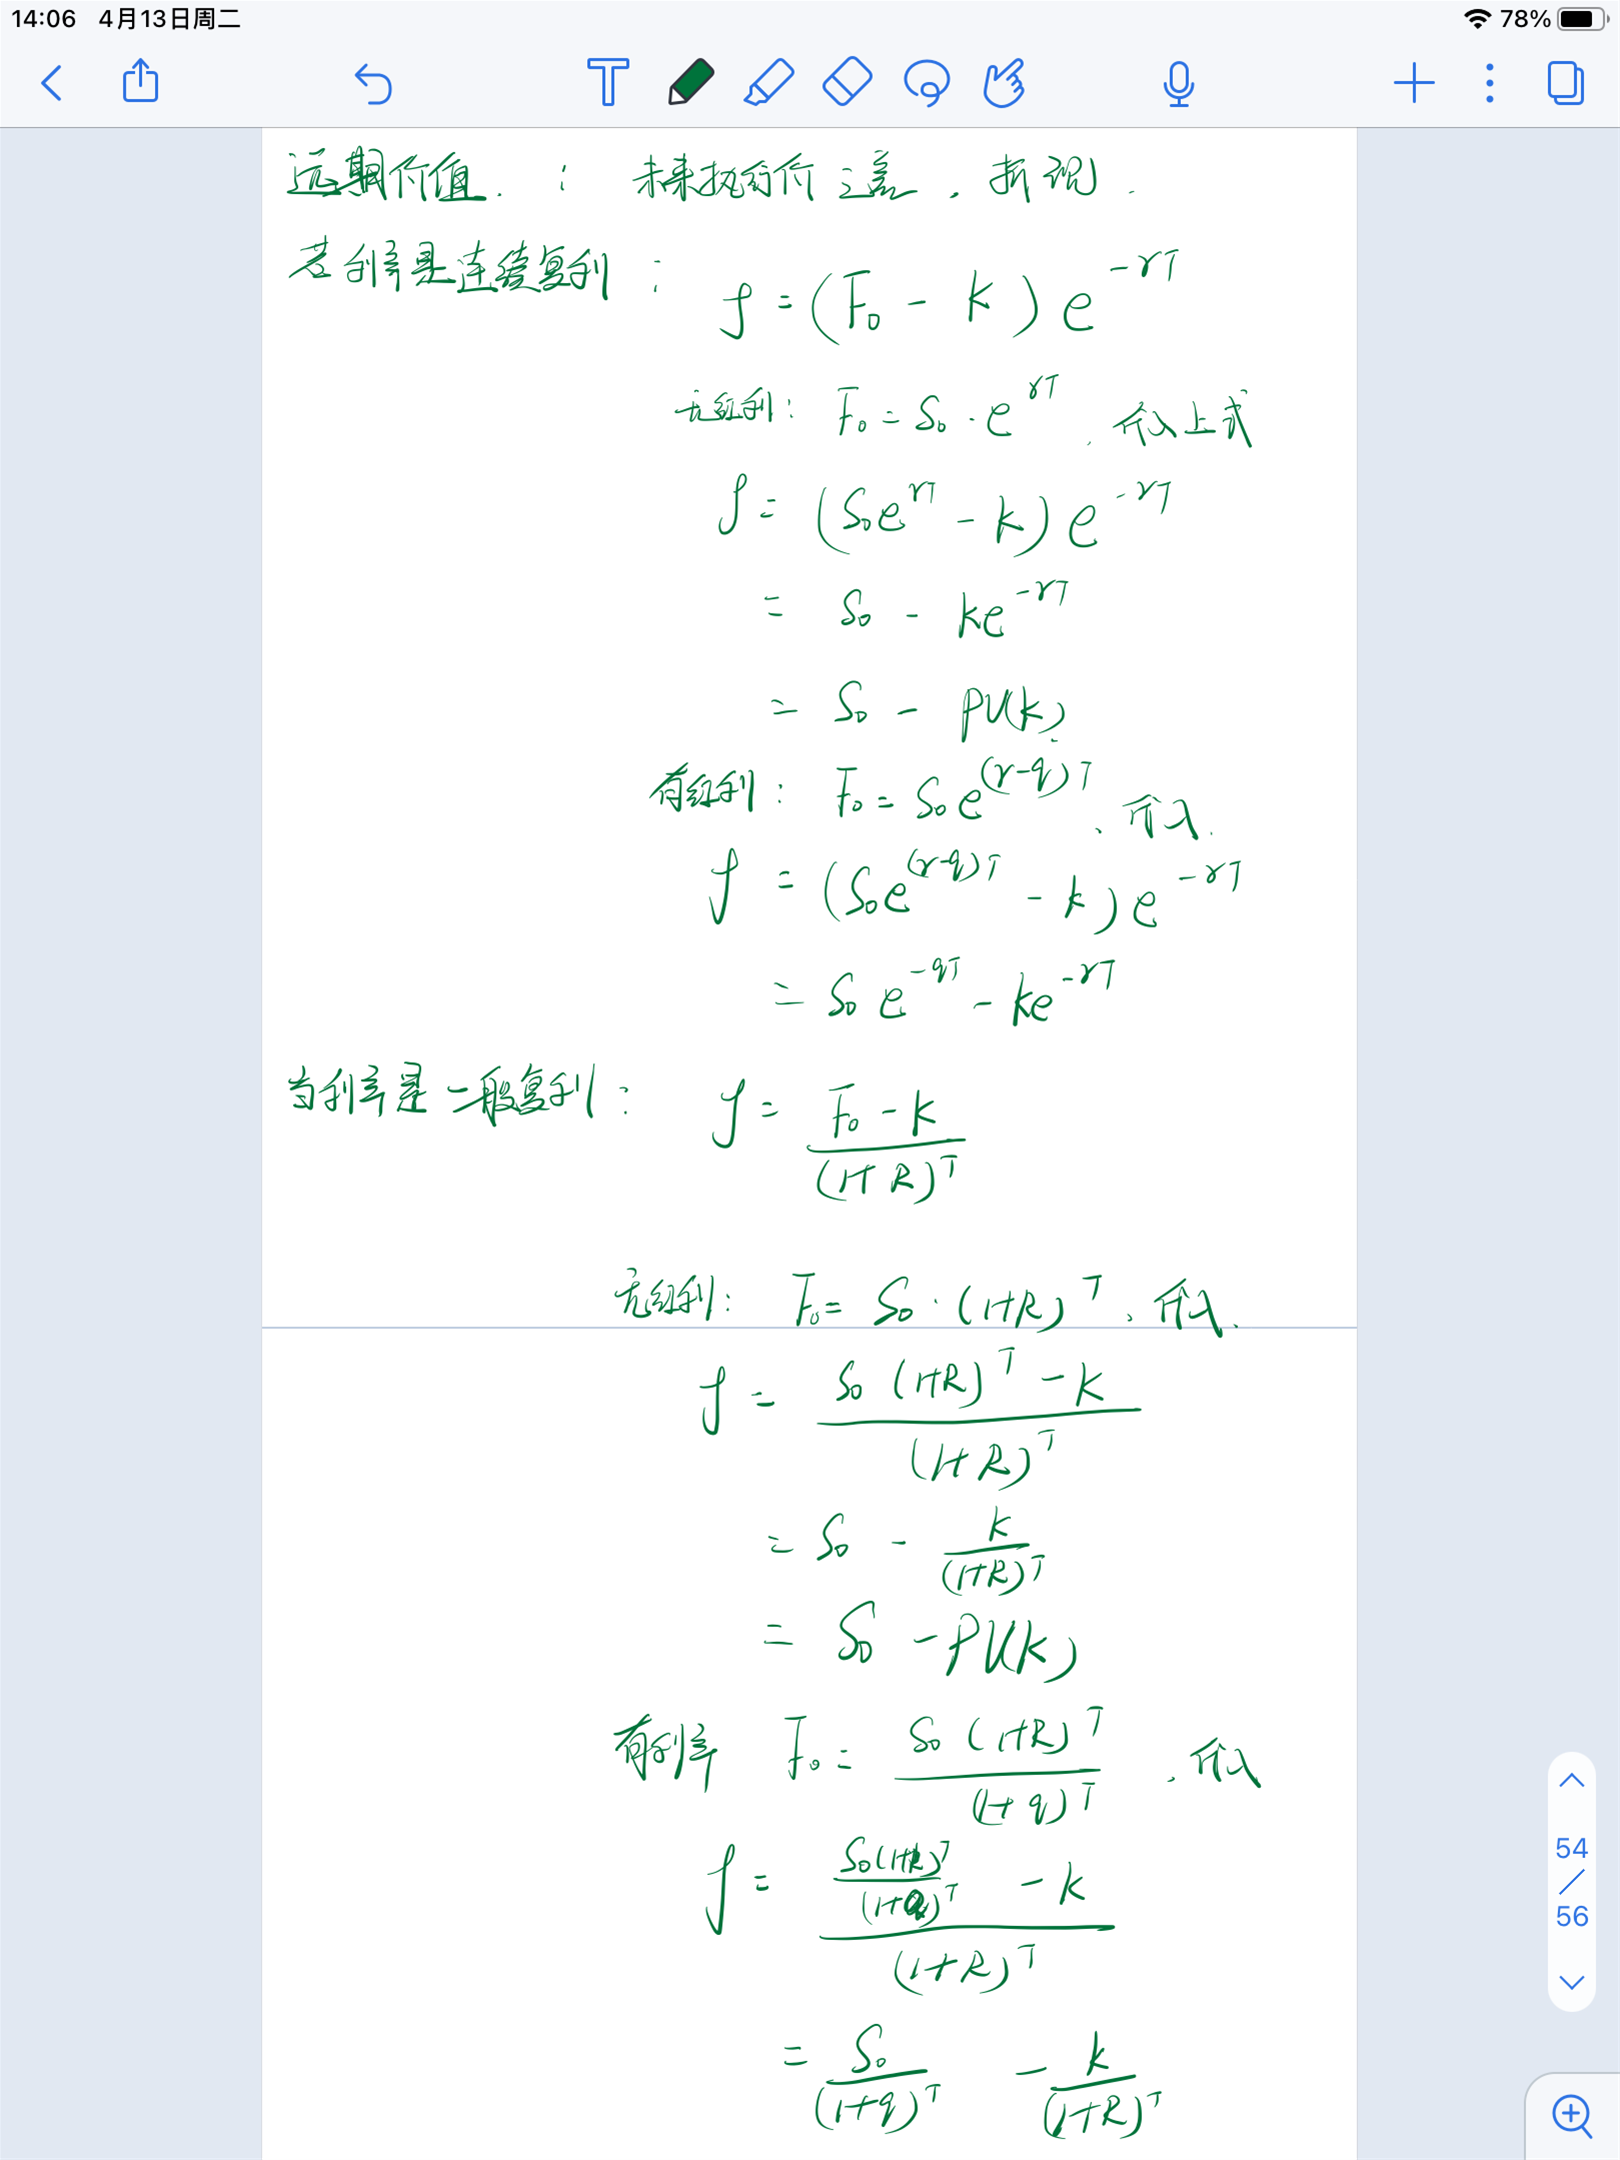 14:06 4月13日周二 78%
T
远期价值. : 未来执行价之差, 折现.
若利率是连续复利: f = (F₀ - K) e^{-rT}
无红利: F₀ = S₀ · e^{rT}, 代入上式
f = (S₀e^{rT} - K) e^{-rT}
= S₀ - Ke^{-rT}
= S₀ - PV(K)
有红利: F₀ = S₀e^{(r-q)T}, 代入.
f = (S₀e^{(r-q)T} - K) e^{-rT}
= S₀e^{-qT} - Ke^{-rT}
当利率是一般复利: f = \frac{F₀ - K}{(1+R)^T}
无红利: F₀ = S₀ · (1+R)^T, 代入.
f = \frac{S₀(1+R)^T - K}{(1+R)^T}
= S₀ - \frac{K}{(1+R)^T}
= S₀ - PV(K)
有利率 F₀ = \frac{S₀(1+R)^T}{(1+q)^T}, 代入
f = \frac{\frac{S₀(1+R)^T}{(1+q)^T} - K}{(1+R)^T}
= \frac{S₀}{(1+q)^T} - \frac{K}{(1+R)^T}
54
/
56